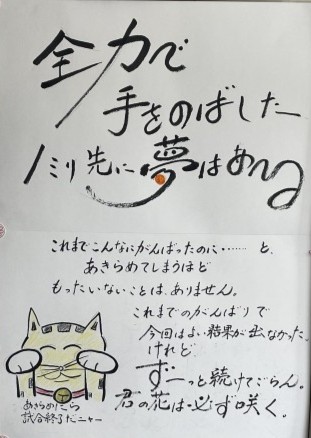 全力で
手をのばした
1ミリ先に夢はある
これまでこんなにがんばったのに・・・・・・と、
あきらめてしまうほど
もったいないことは、ありません。
これまでのがんばりで
今回はよい結果が出なかった。
けれど
ずーっと続けてごらん。
君の花は必ず咲く。
あきらめたら
試合終了だニャー